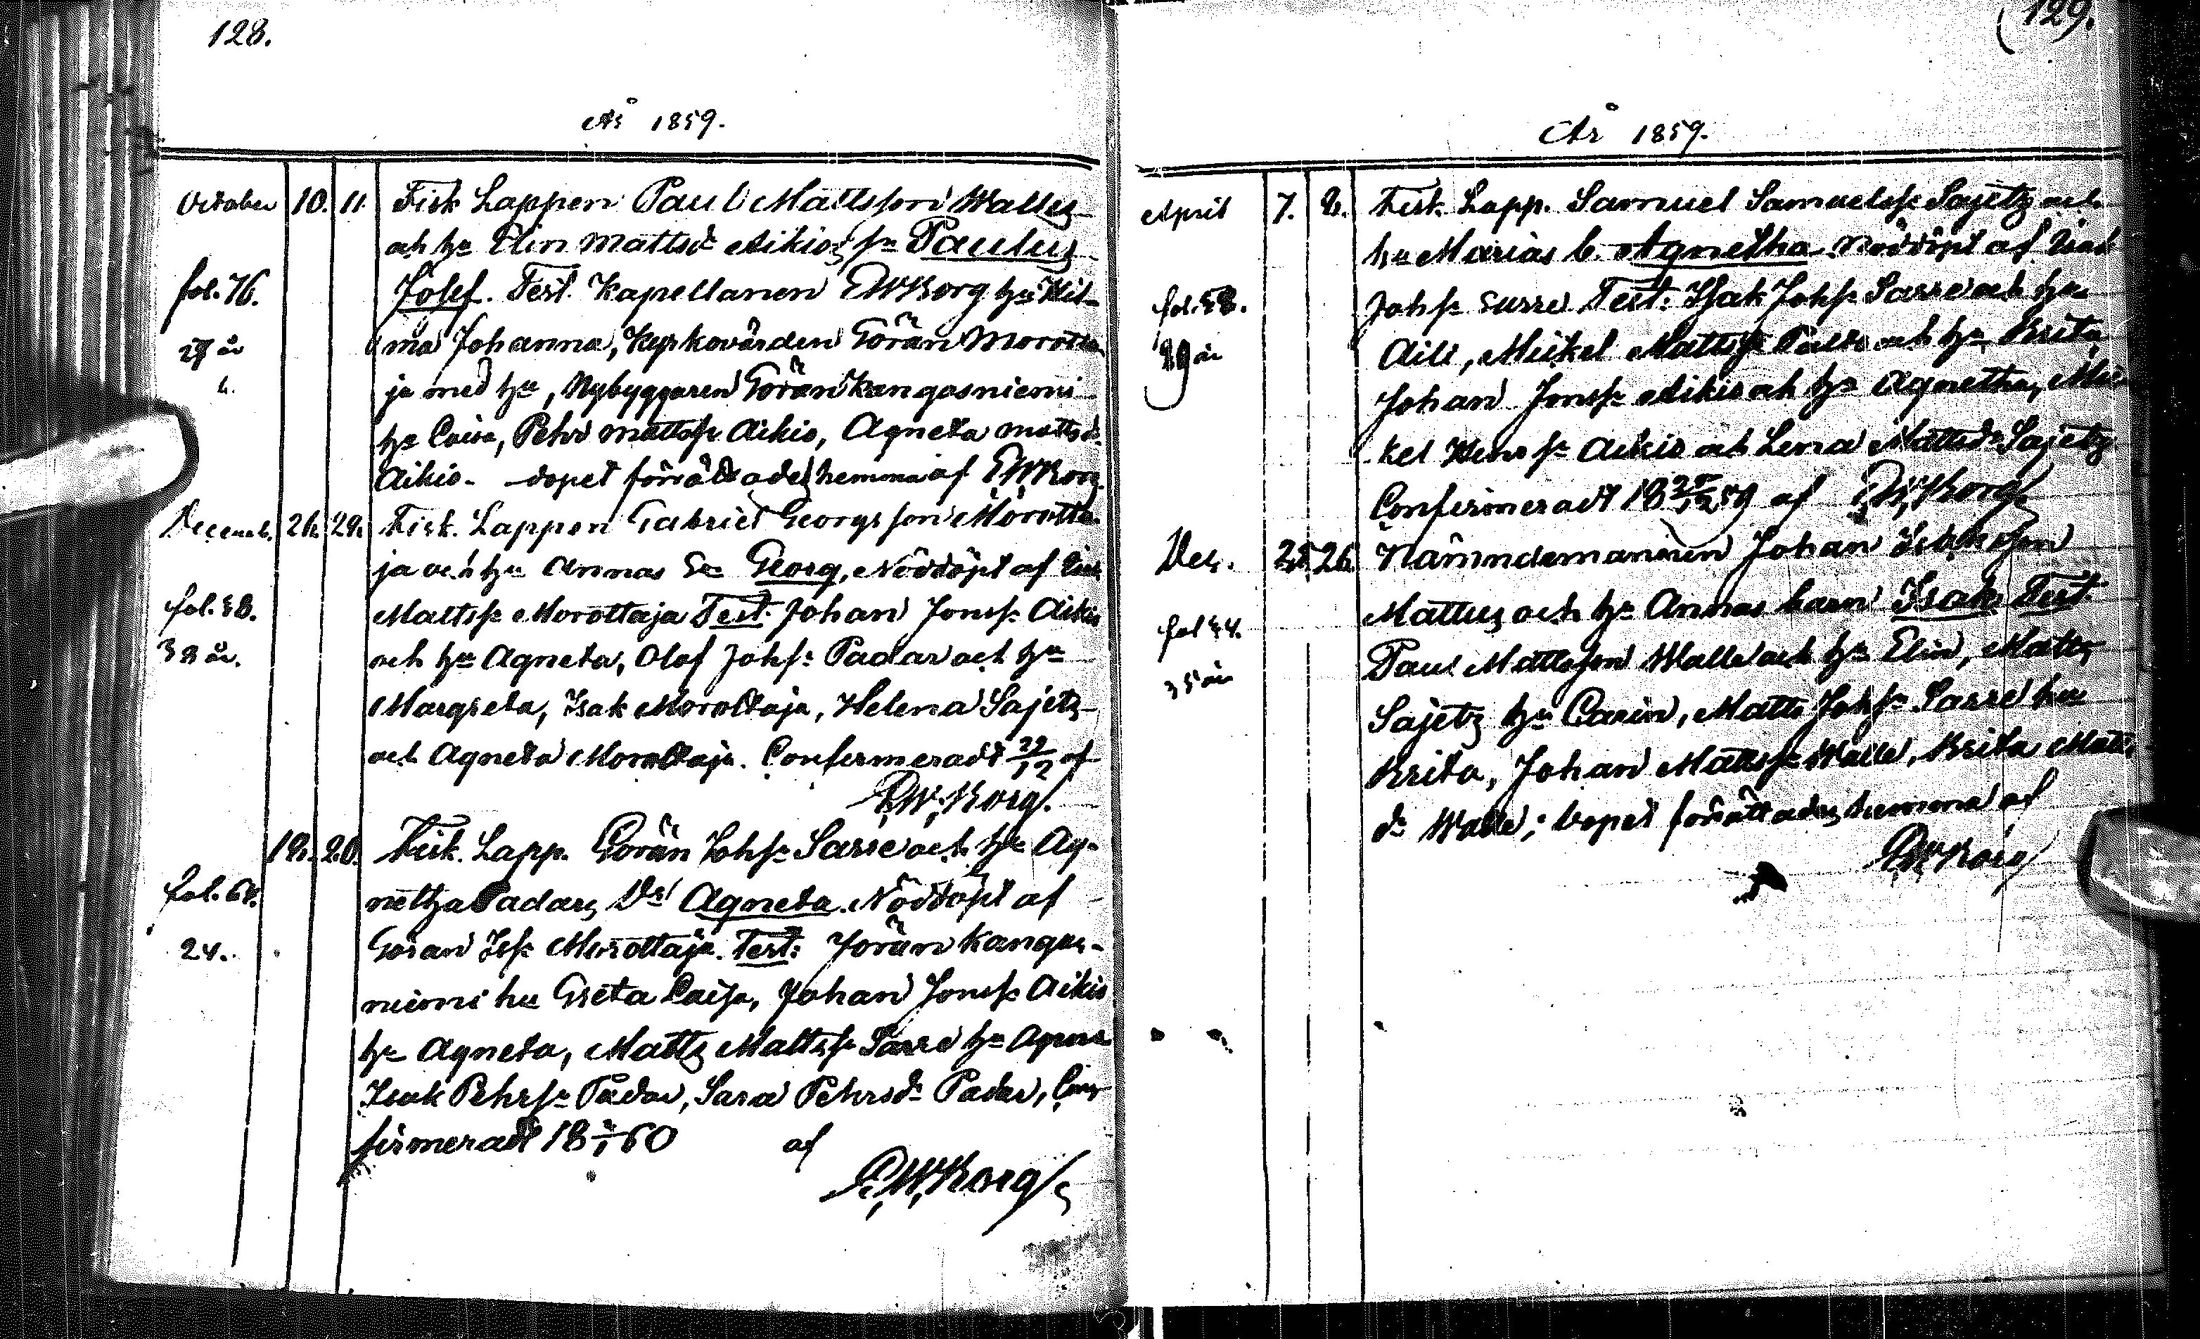 128.
År 1859.
October 10. 11. Fisk Lappen Paul Mattsson Walles
och hu Elin Mattsd Aikios, sn Paulus
fol. 76. Josef. Test. Kapellanen EWBorg hu Wil-
27 år ma Johanna, Kyrkovärden Göran Morotta-
ja med hu, Nybyggaren Göran Kangasniemi
hu Caisa, Pehr Mattss Aikio, Agneta Mattsd.
Aikio. dopet förrättades hemma af EWBorg.
Decemb. 26. 29. Fisk. Lappen Gabriel Georgsson Morotta-
ja och hu Annas Sn Georg, Nöddöpt af
fol. 58. Mattss Morottaja Test: Johan Jonss Aikio
38 år. och hu Agneta, Olof Johss Padar och hu
Margreta, Isak Morottaja, Helena Sajets
och Agneta Morottaja. Confirmeradt 29/12 af
E.W. Borg.
18. 20. Fisk. Lapp. Göran Johss Sarre och hu Ag-
fol. 68. netha Padars Dr Agneta. Nöddöpt af
24. Göran Morottaja. Test: Jöran Kangas-
niemi hu Greta Caisa, Johan Jonss Aikio
hu Agneta, Matts Mattss Sarre hu
Isak Pehrss Padar, Sara Pehrsd Padar, Con-
firmeradt 18 60 af
E.W.Borg
129.
År 1859.
April 7. 8. Fisk. Lapp. Samuel Samuelss Sajetz och
hu Marias b. Agnetha Nöddöpt af Isak
fol. 58. Johss Sarre Test: Isak Johss Sarre och hu
29 år Aili, Mickel Mattss och hu Brita
Johan Jonss Aikio och hu Agnetha, Mic-
kel Aikio och Lena Mattsd Sajetz
Confirmeradt 18 59 af E.W.Borg
Dec. 25. 26. Nämndemannen Johan
fol 44. Mattus och hu Annas barn Isak Test
35 år Paul Mattsson Walle och hu Elin, Matts
Sajetz hu Carin, Matts Johss Sarre hu
Brita, Johan Mattss Walle, Brita Matts-
dr Walle; Dopet förrättades hemma af
E.W.Borg